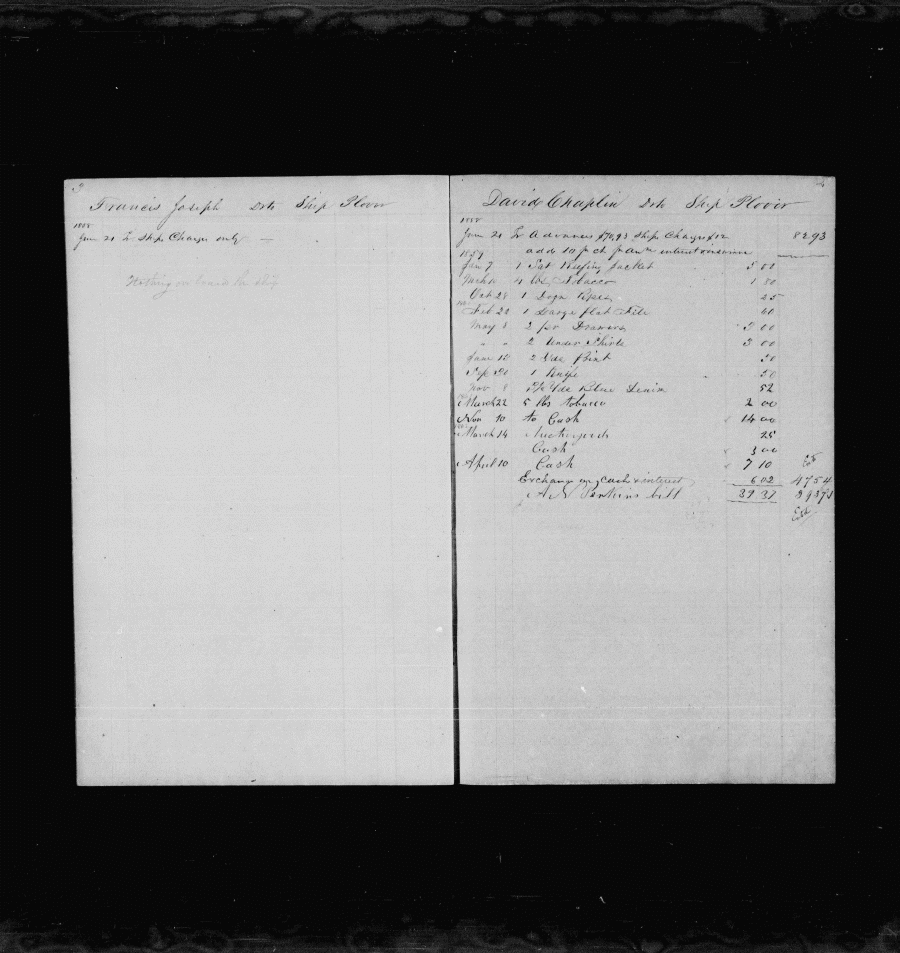 3
Francis Joseph Dr to Ship Plover
1858
Jan 21 To Ship Charges only —
Nothing on board the ship
4
David Chaplin Dr to Ship Plover
1858
Jan 21 To Advances $70,93 Ship Charges $12 82,93
add 10 p ct p interest
1859
Jan 7 1 Jacket 5 00
4 lbs Tobacco 1 80
Oct 28 1 Dozn Pipes 25
Feb 22 1 Large flat File 60
May 8 2 pr Drawers 3 00
" " 2 Under Shirts 3 00
June 10 2 Yds Print 50
Sep 20 1 Knife 50
Nov 8 Yds Blue Denim 52
March 22 5 lbs tobacco 2 00
Nov 10 to Cash 14 00
March 14 25
Cash 3 00
April 10 Cash 7 10
Exchange on Cash & interest 6 02 47 54
Perkins bill 39 37 39 37